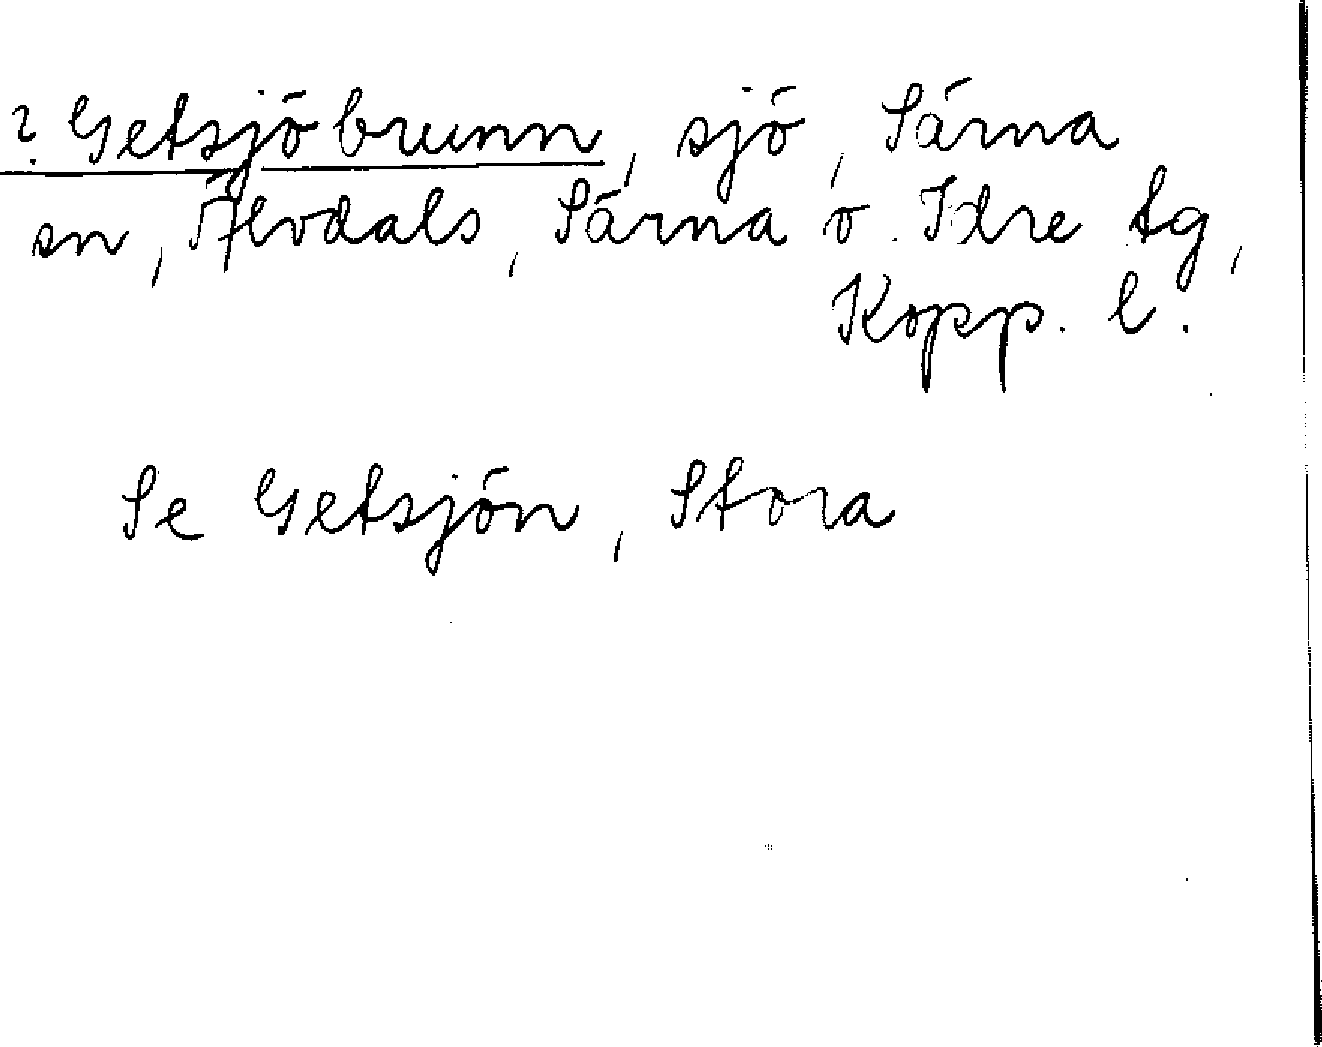 ? Getsjöbrunn, sjö, Särna
sn, Älvdals, Särna o. Idre tg,
Kopp. l.
Se Getsjön, Stora